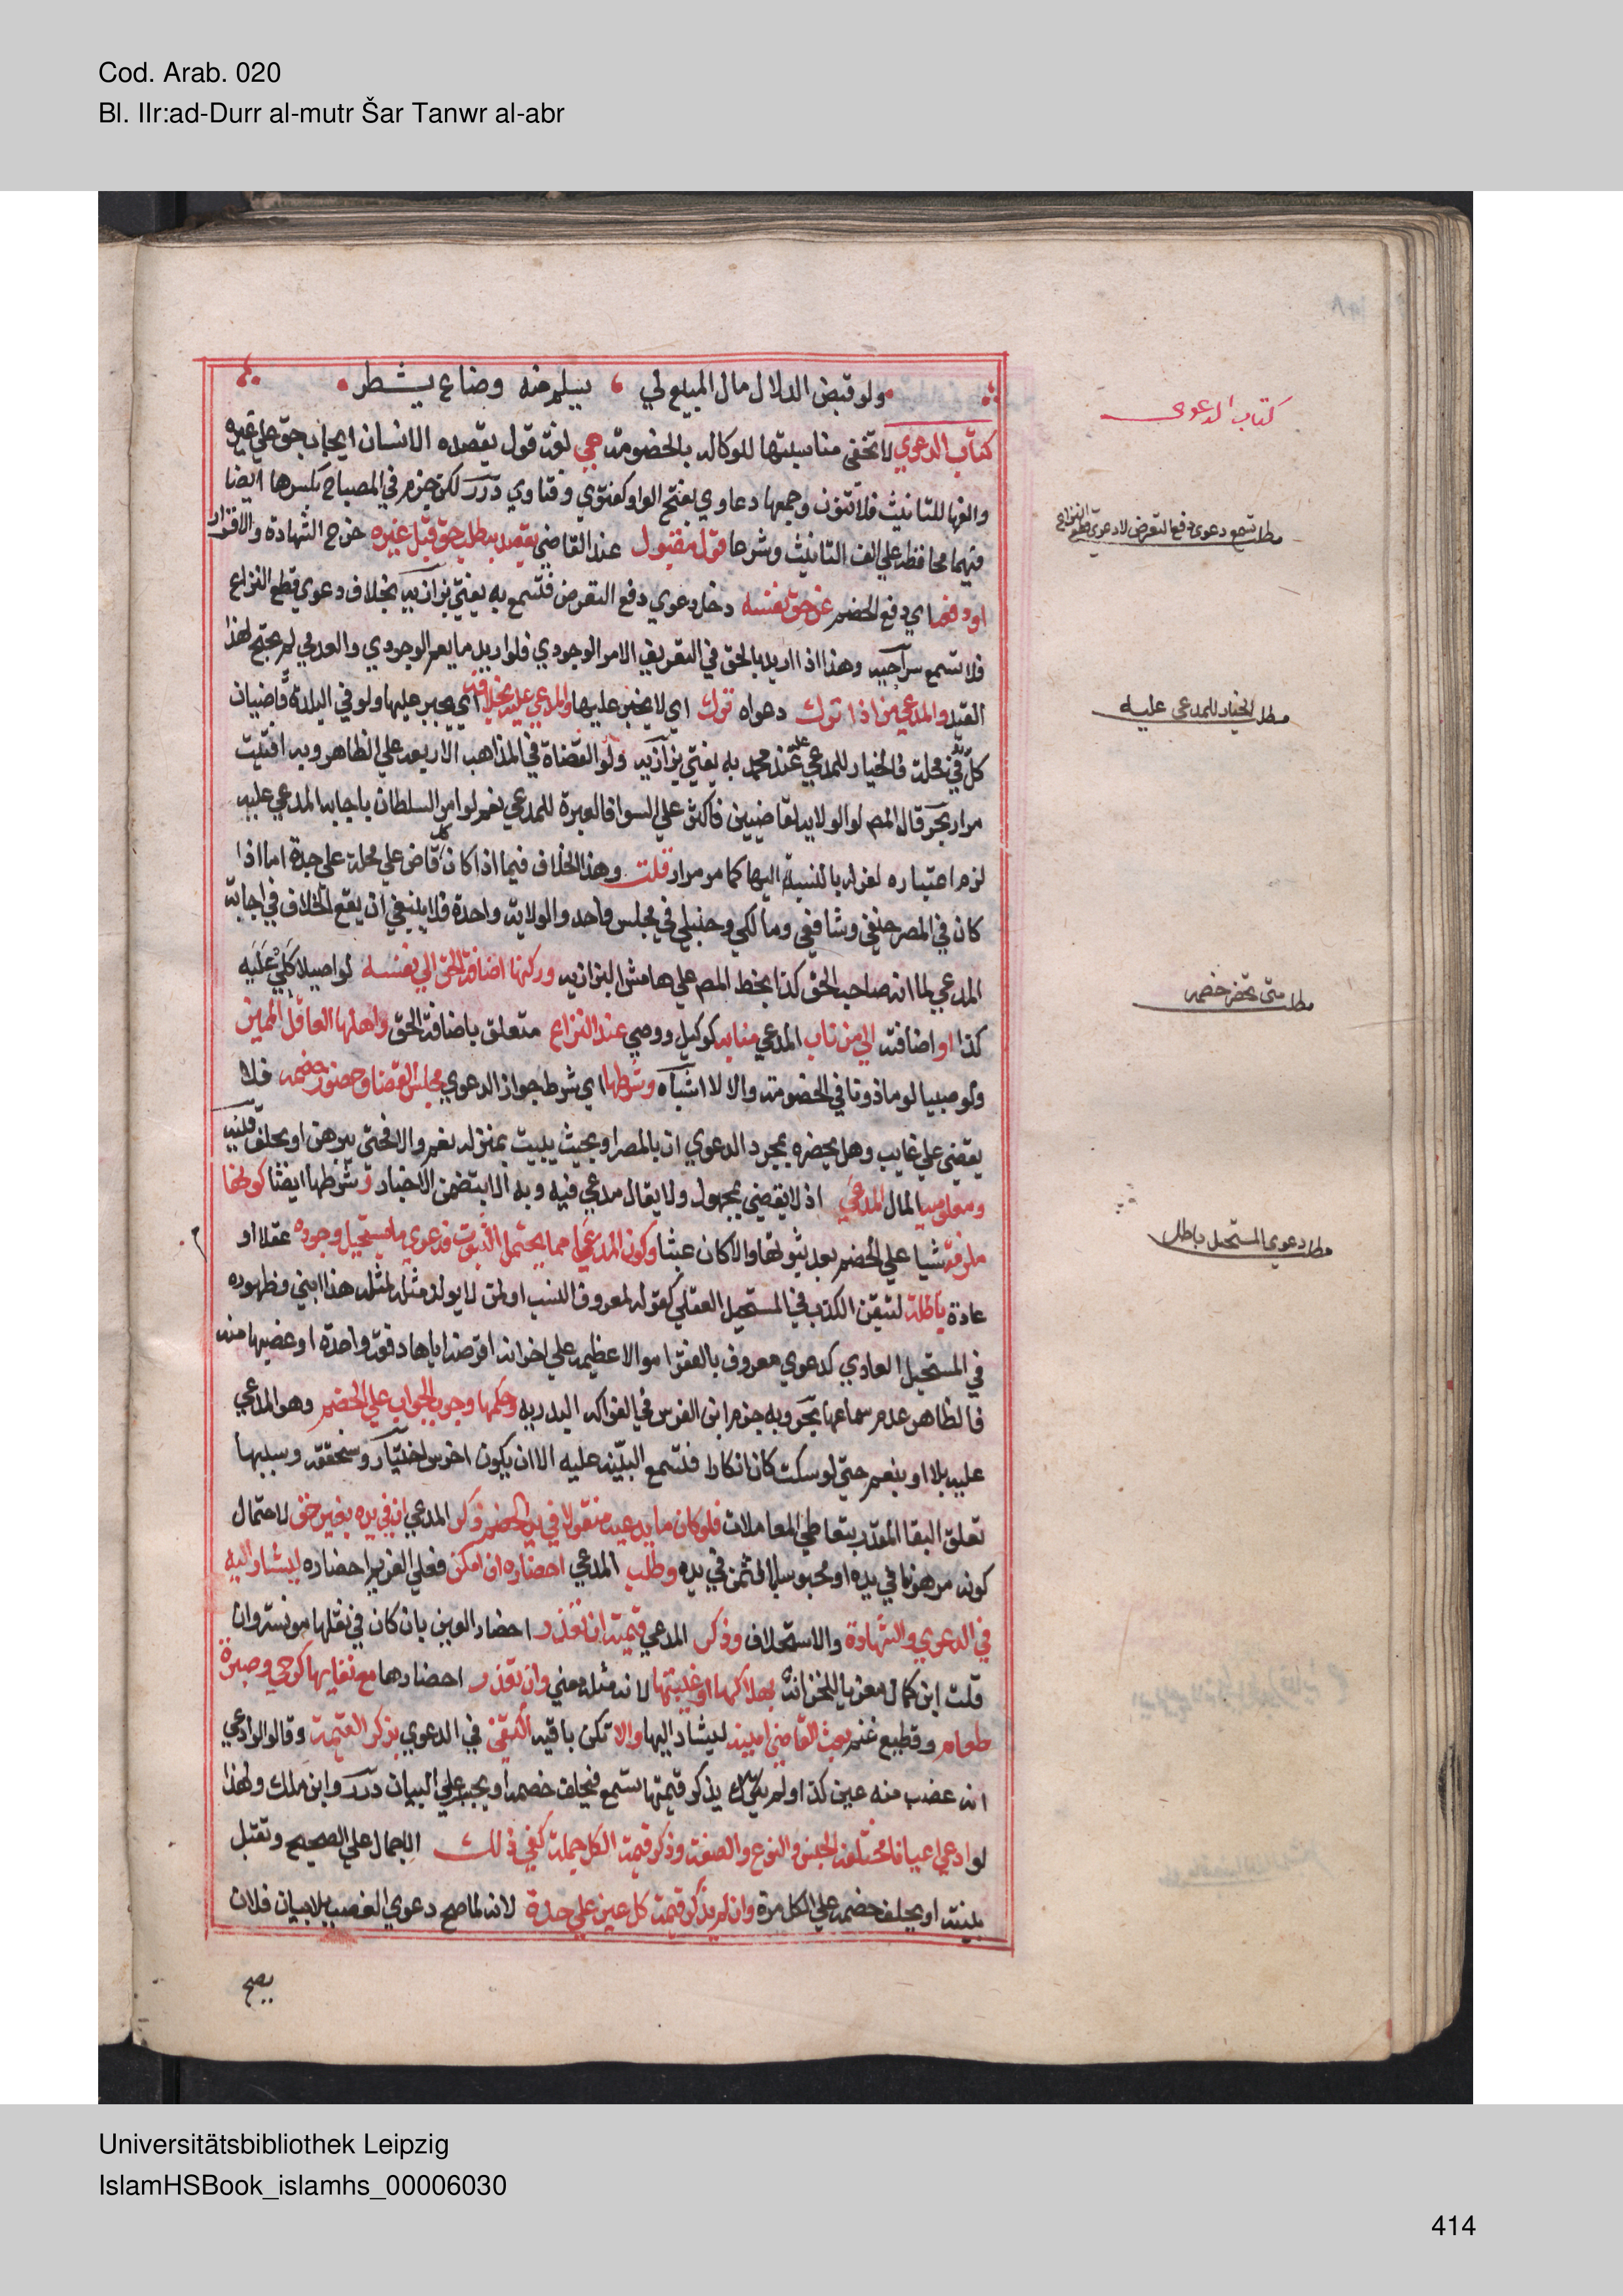 Cod. Arab. 020
Bl. IIr:ad-Durr al-mutr Šar Tanwr al-abr
ولو قبض الدلال مال المبيع لي يسلم منه وضاع يشطر
كتاب الدعوى
كتاب الدعوي لا تخفى مناسبتها للوكاله بالخصومة هي لغة قول يقصده الانسان ايجاب حق علي غيره
والفها للتانيث فلا تنون وجمعها دعاوي بفتح الواو كفتوي وفتاوي درر لكن جزم في المصباح بكسرها ايضا
فيهما محافظة علي الف التانيث وشرعا قول مقبول عند القاضي يقصد به طلب حق قبل غيره خرج الشهادة والاقرار
مطلب تسمع دعوى دفع التعرض لا دعوى قطع النزاع
او دفعه اي دفع الخصم عن حق نفسه دخل دعوي دفع التعرض فتسمع به يفتي بزازيه بخلاف دعوي قطع النزاع
فلا تسمع سراجيه وهذا اذا اريد بالحق في التعريف الامر الوجودي فلو اريد ما يعم الوجودي والعدمي لم يحتج لهذا
القيد والمدعي من اذا ترك دعواه ترك اي لا يجبر عليها والمدعي عليه بخلافه اي يجبر عليها ولو في البلدة قاضيان
مطلب الخيار للمدعى عليه
كل في محلة فالخيار للمدعي عليه عند محمد به يفتي بزازيه ولو القضاة في المذاهب الاربعه علي الظاهر وبه افتيت
مرارا بحر قال المص لو الولايه لقاضيين فاكثر علي السوا فالعبرة للمدعي نعم لو امر السلطان باجابه المدعي عليه
لزم اعتباره لعزله بالنسبة اليها كما مر مرارا قلت وهذا الخلاف فيما اذا كان كل قاض علي محلة علي حدة اما اذا
كان في المصر حنفي وشافعي ومالكي وحنبلي في مجلس واحد والولاية واحدة فلا ينبغي ان يقع الخلاف في اجابة
المدعي لما انه صاحب الحق كذا بخط المص علي هامش البزازيه وركنها اضافة الحق الي نفسه لو اصيلا كلي عليه
مطلب متى يحضر خصمه
كذا او اضافته الي من ناب المدعي منابه كوكيل ووصي عند النزاع متعلق باضافة الحق واهلها العاقل المميز
ولو صبيا لو ماذونا في الخصومة والا لا اشباه وشرطها اي شرط جواز الدعوي مجلس القضا وحضور خصمه فلا
يقضي علي غايب وهل يحضره بمجرد الدعوي ان بالمصر او بحيث يبيت بمنزله نعم والا فحتى يبرهن او يحلف منيه
ومعلومية المال المدعي اذ لا يقضي بمجهول ولا يقال مدعي فيه وبه الا ان يتضمن الاخبار وشرطها ايضا كونها
ملزمة شيا علي الخصم بعد ثبوتها والا كان عبثا وكون المدعي مما يحتمل الثبوت فدعوي ما يستحيل وجوده عقلا او
مطلب دعوي المستحيل باطله
عادة باطلة لتيقن الكذب في المستحيل العقلي كقوله لمعروف النسب او لمن لا يولد مثله لمثله هذا ابني وظهوره
في المستحيل العادي كدعوي معروف بالفقر اموالا عظيمه علي اخر انه اقرضه اياها دفعة واحدة او غصبها منه
فالظاهر عدم سماعها بحر وبه جزم ابن الغرس في الفواكه البدريه وحكمها وجوب الجواب علي الخصم وهو المدعي
عليه بلا او بنعم حتى لو سكت كان انكارا فتسمع البينه عليه الا ان يكون اخرس اختيار وسنحققه وسببها
تعلق البقا المقدر بتعاطي المعاملات فلو كان ما يدعيه منقولا في يد الخصم ذكر المدعي انه في يده بغير حق لاحتمال
كونه مرهونا في يده او محبوسا بالثمن في يده وطلب المدعي احضاره ان امكن فعلي الغريم احضاره ليشار اليه
في الدعوي والشهادة والاستحلاف وذكر المدعي قيمته ان تعذر احضار العين بان كان في نقلها مونة وان
قلت ابن كمال معزيا للخزانة بهلاكها او غيبتها لانه مثله معني وان تعذر احضارها مع بقايها كرحي وصبرة
طعام وقطيع غنم بعث القاضي امينه ليشار اليها والا تكن باقيه اكتفي في الدعوي بذكر القيمة وقالوا لو ادعي
انه غصب منه عين كذا ولم يذكر قيمتها تسمع فيحلف خصمه او يجبر علي البيان درر وابن ملك ولهذا
لو ادعي اعيانا مختلفة الجنس والنوع والصفة وذكر قيمة الكل جملة كفي ذلك الاجمال علي الصحيح وتقبل
بينته او يحلف خصمه علي الكل مرة وان لم يذكر قيمة كل عين علي حدة لانه لما صح دعوي الغصب بلا بيان فلان
يصح
Universitätsbibliothek Leipzig
IslamHSBook_islamhs_00006030
414